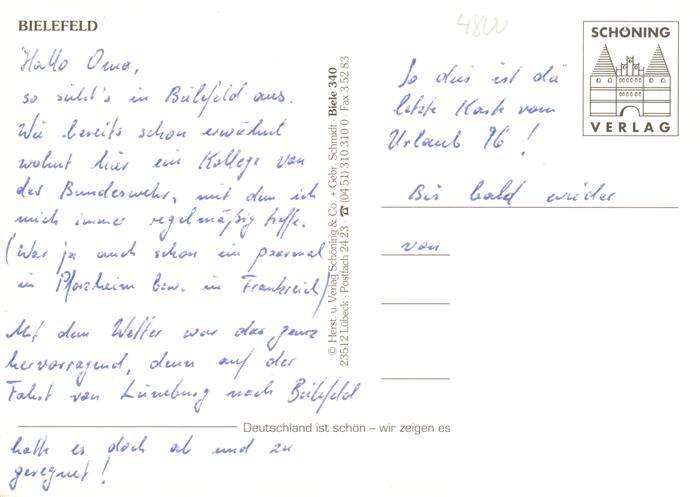 BIELEFELD
4800
Hallo Oma,
so sieht's in Bielefeld aus.
Wie bereits schon erwähnt
wohnt hier ein Kollege von
der Bundeswehr, mit dem ich
mich immer regelmäßig treffe.
(War ja auch schon ein paarmal
in Pforzheim bzw. in Frankreich)
Mit dem Wetter war das ganz
hervorragend, denn auf der
Fahrt von Lüneburg nach Bielefeld
hatte es doch ab und zu
geregnet!
© Herst. u. Verlag Schöning & Co. + Gebr. Schmidt · Biele 340
23512 Lübeck · Postfach 24 23 · ☎ (04 51) 310 310 0 · Fax 3 52 83
Deutschland ist schön – wir zeigen es
So dies ist die
letzte Karte vom
Urlaub 96!
Bis bald wieder
von
SCHÖNING
VERLAG